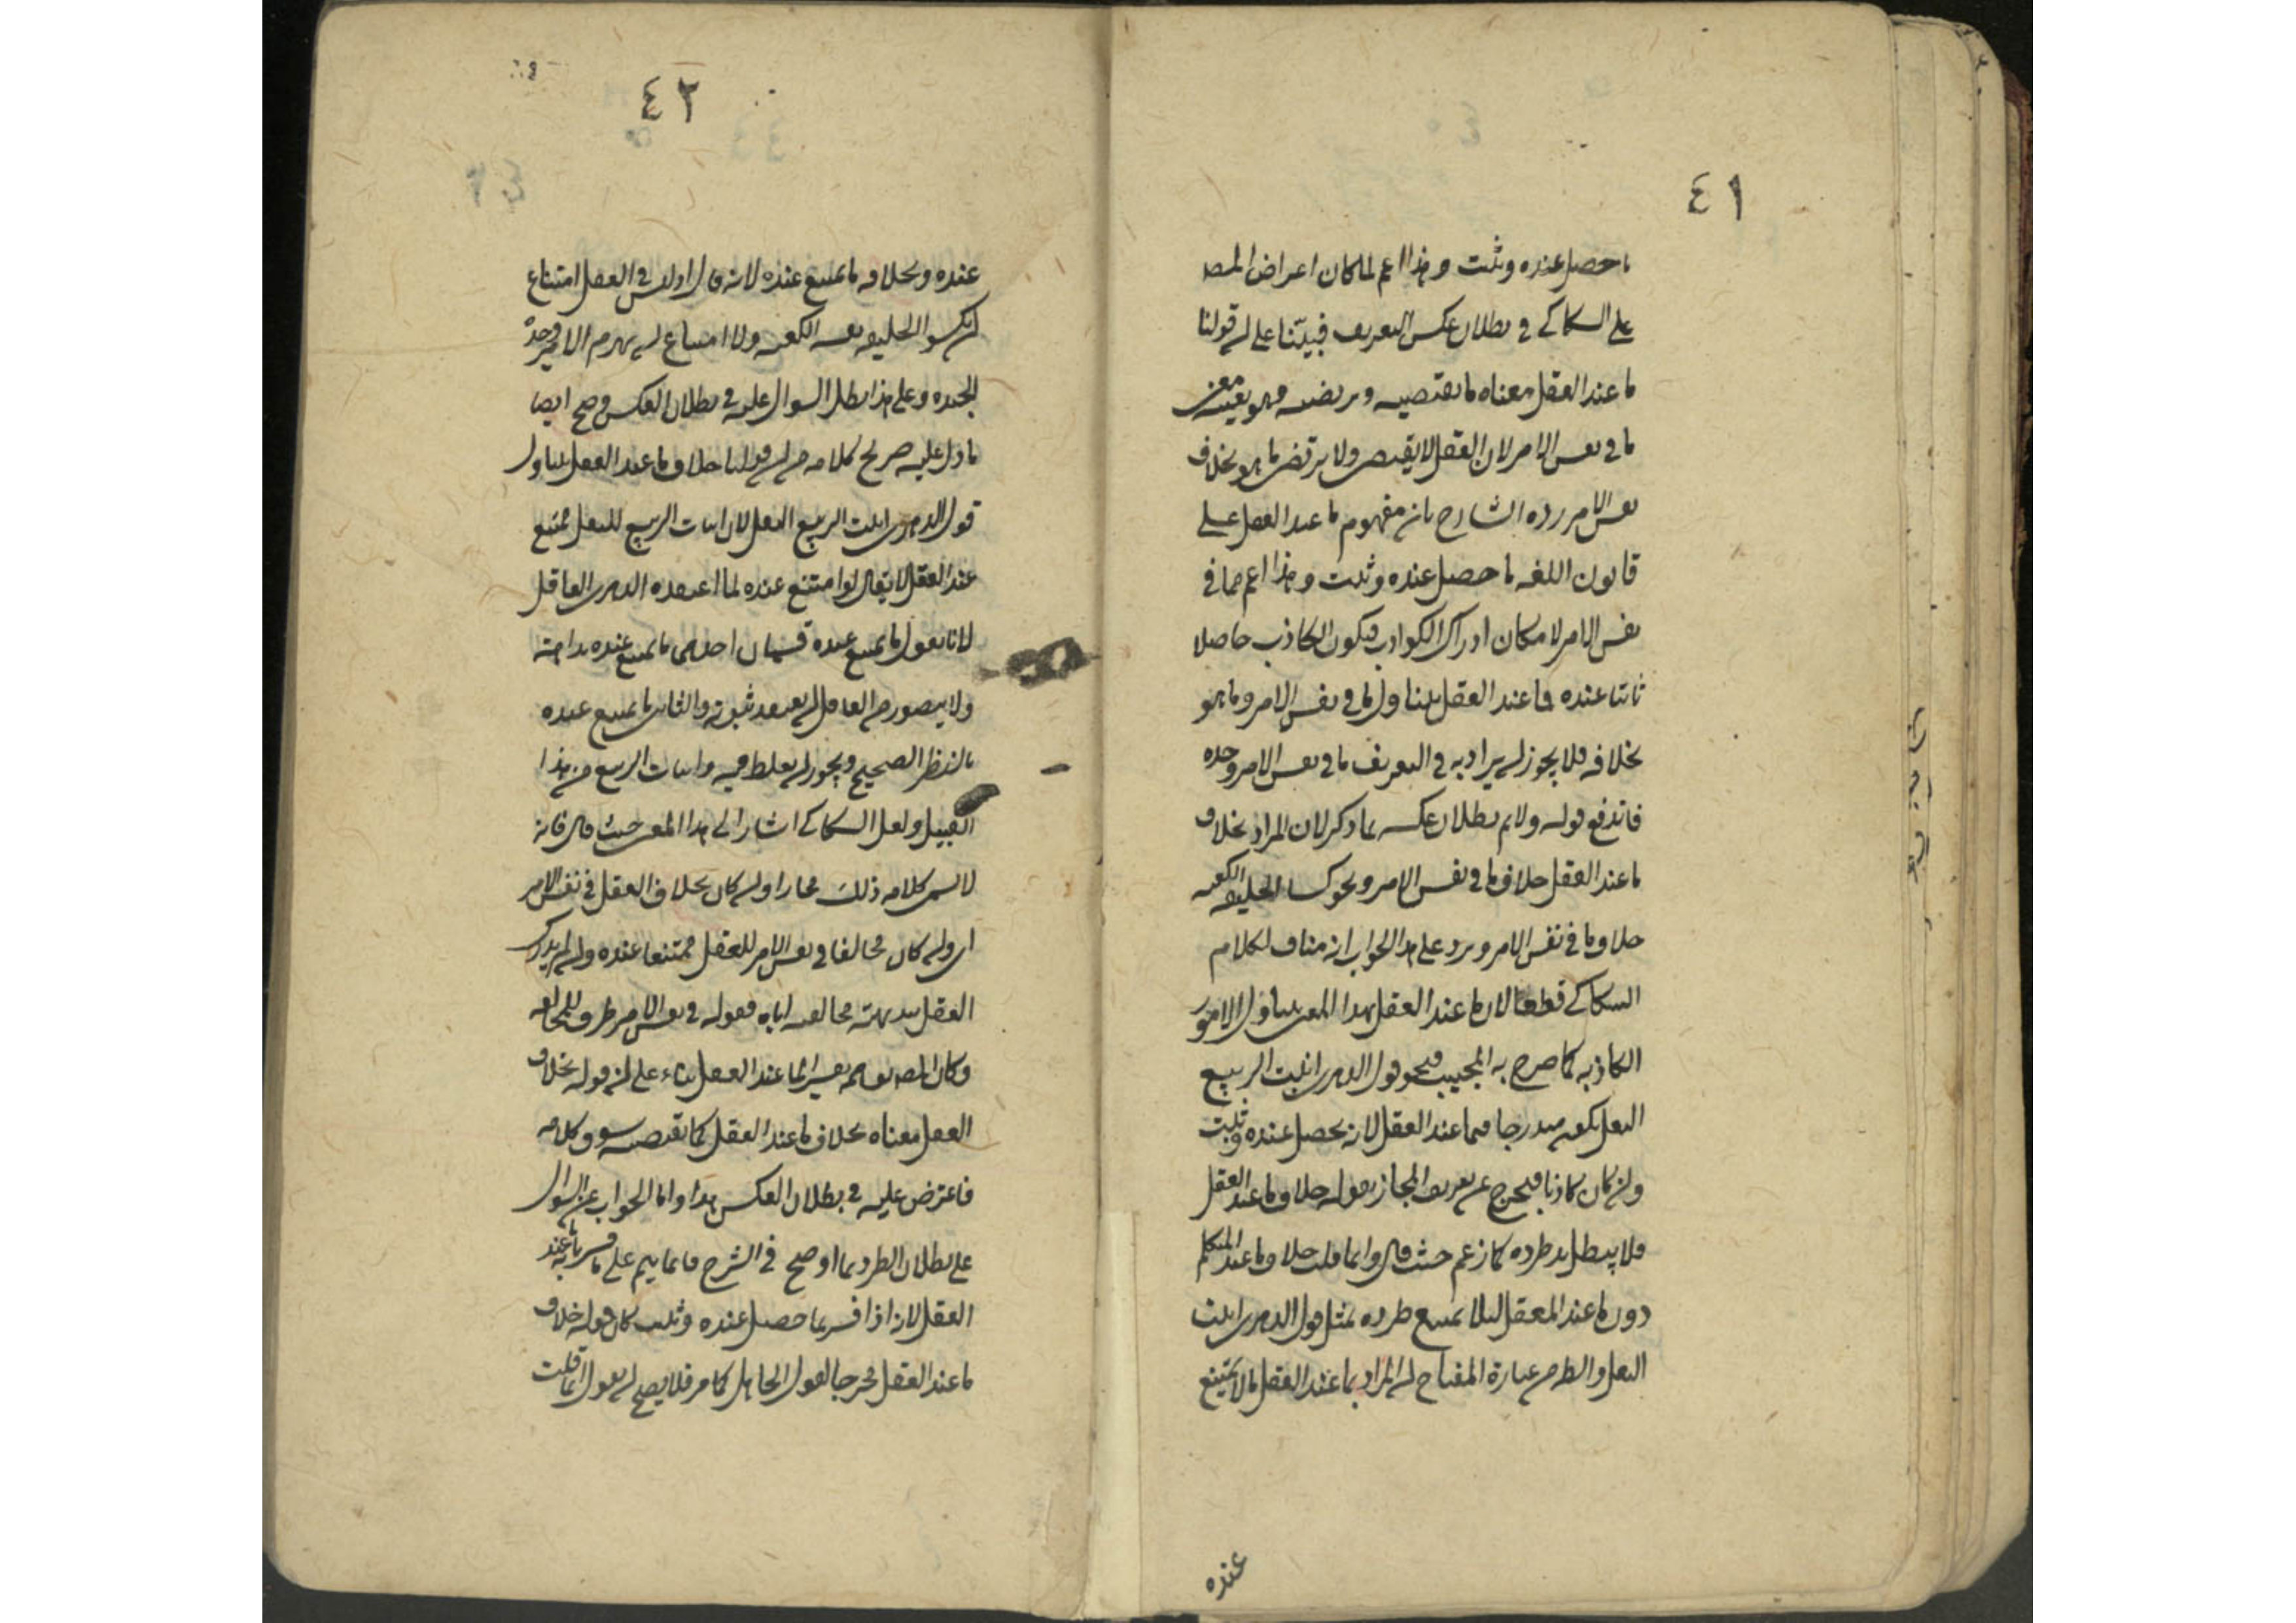 ٤١
ما حصل عنده وثبت وهذا اعم لما كان اعراض المصـ
على السكاكي في بطلان عكس التعريف فبيّنا على ان قولنا
ما عند العقل معناه ما يقتضيه ويرتضيه وهو بعينه معنى
ما في نفس الامر لان العقل لا يقتضى ولا يرتضى ما هو بخلاف
نفس الامر رده الشارح بان مفهوم ما عند العقل على
قانون اللغه ما حصل عنده وثبت وهذا اعم مما في
نفس الامر لامكان ادراك الكواذب فيكون الكاذب حاصلا
ثابتا عنده فما عند العقل يتناول ما في نفس الامر وما هو
بخلافه فلا يجوز ان يراد به في التعريف ما في نفس الامر وحده
فاندفع قوله ولا نم بطلان عكسه بما ذكر لان المراد بخلاف
ما عند العقل خلاف ما في نفس الامر ونحو كسا الخليفه الكعبه
خلاف ما في نفس الامر ويرد على هذا الجواب انه مناف لكلام
السكاكي قطعا لان ما عند العقل بهذا المعنى يتناول الامور
الكاذبه كما صرح به المجيب فنحو قول الدهرى انبت الربيع
البقل يكون مندرجا فيما عند العقل لانه يحصل عنده وثبت
وان كان كاذبا فيخرج عن تعريف المجاز بقوله خلاف ما عند العقل
فلا يبطل به طرده كما زعم حيث قال وانما قلت خلاف ما عند المتكلم
دون ما عند العقل لئلا يمتنع طرده بمثل قول الدهرى انبت
البقل والظ من عبارة المفتاح ان المراد بما عند العقل ما لا يمتنع
عنده
٤٢
عنده وبخلافه ما يمتنع عنده لانه قال اوليس في العقل امتناع
ان يكسو الخليفه نفسه الكعبه ولا امتناع ان يهزم الامير وحده
الجند وعلى هذا بطل السوال عليه في بطلان العكس وصح ايضا
ما دل عليه صريح كلامه من ان قولنا خلاف ما عند العقل يتناول
قول الدهرى انبت الربيع البقل لان انبات الربيع للبقل ممتنع
عند العقل لا يقال لو امتنع عنده لما اعتقده الدهرى العاقل
لانا نقول ما يمتنع عنده قسمان احدهما ما يمتنع عنده بداهة
ولا يتصور من العاقل ان يعتقد ثبوته والثانى ما يمتنع عنده
بالنظر الصحيح ويجوز ان يغلط فيه وانبات الربيع من هذا
القبيل ولعل السكاكي اشار الى هذا المعنى حيث قال فانه
لا يسمى كلامه ذلك مجازا وان كان بخلاف العقل في نفس الامر
اى وان كان مخالفا في نفس الامر للعقل ممتنعا عنده وان لم يدرك
العقل ببديهته مخالفته اياه فقوله في نفس الامر ظرف للمخالفه
وكان المصـ توهم تفسير ما عند العقل بناء على ان قوله بخلاف
العقل معناه بخلاف ما عند العقل كما يقتضيه سوق كلامه
فاعترض عليه في بطلان العكس هذا واما الجواب عن السوال
على بطلان الطرد بما اوضح في الشرح فانما يتم على ما فسر به ما عند
العقل لانه اذا فسر بما حصل عنده وثبت كان قوله خلاف
ما عند العقل مخرجا لقول الجاهل كما مر فلا يصح ان يقول انما قلت